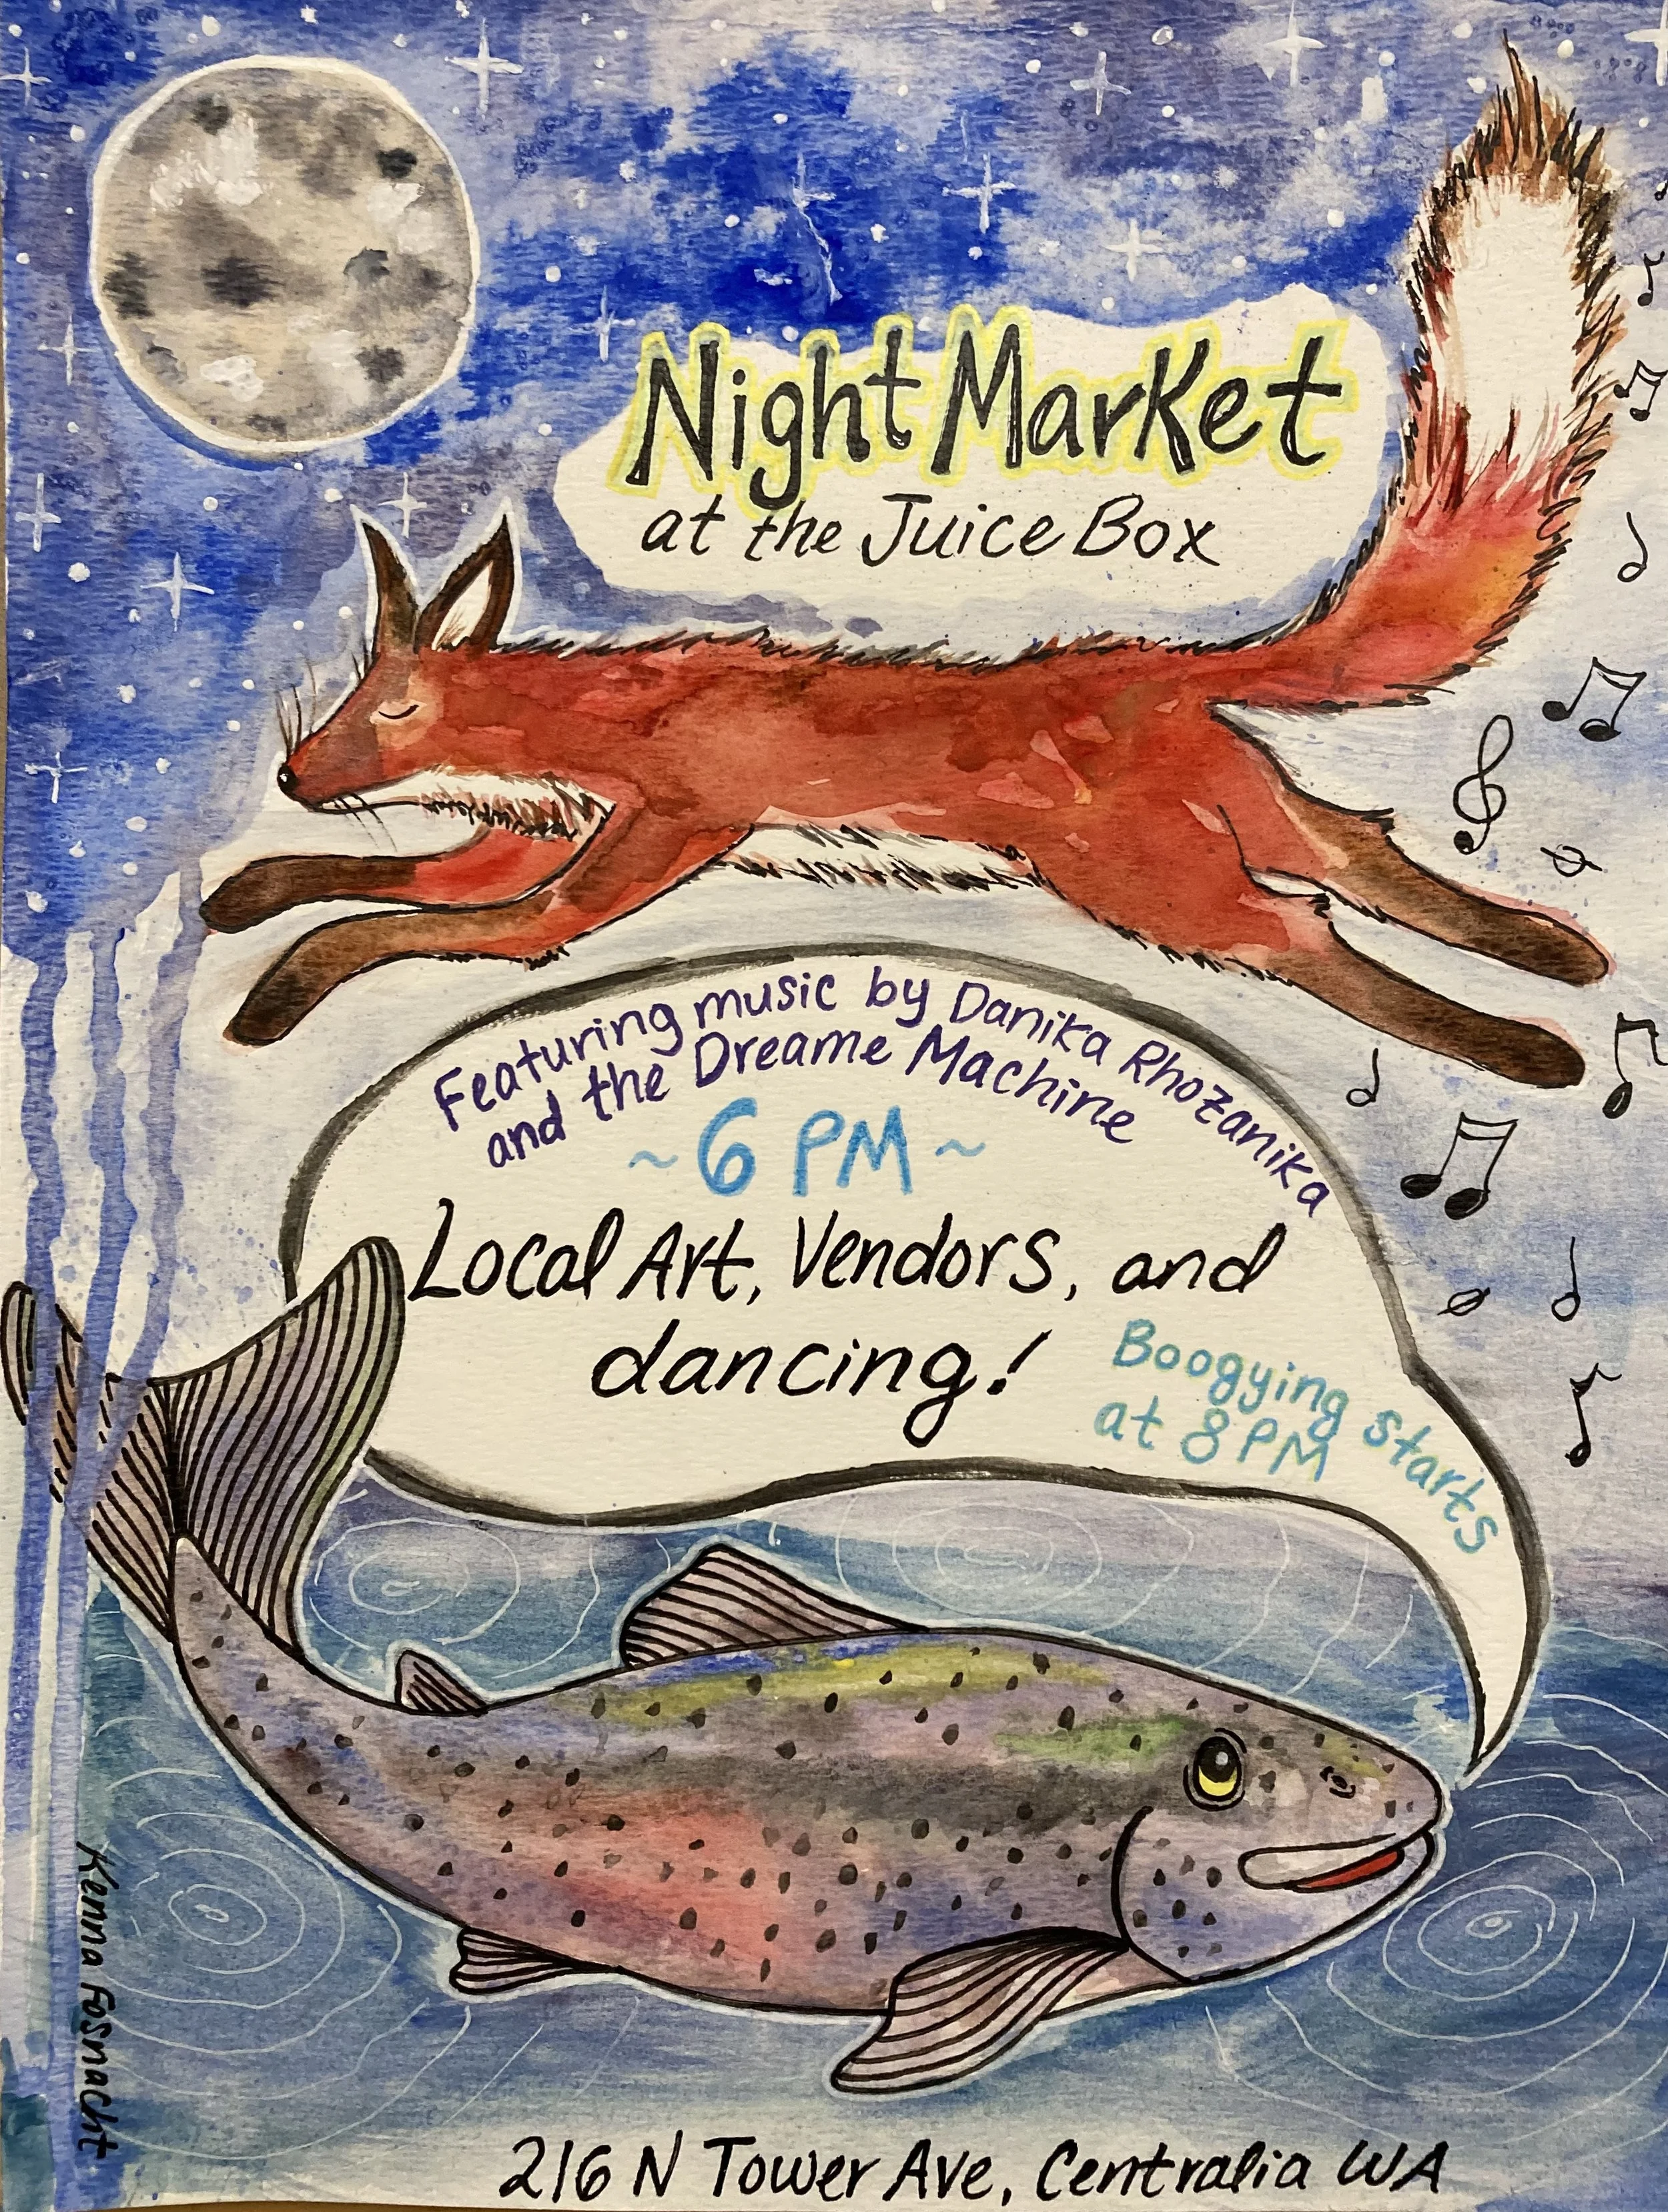 Night Market
at the Juice Box
Featuring music by Danika Rhozanika
and the Dreame Machine
~ 6 PM ~
Local Art, Vendors, and
dancing!
Boogying starts
at 8 PM
Kenna Fosnacht
216 N Tower Ave, Centralia WA